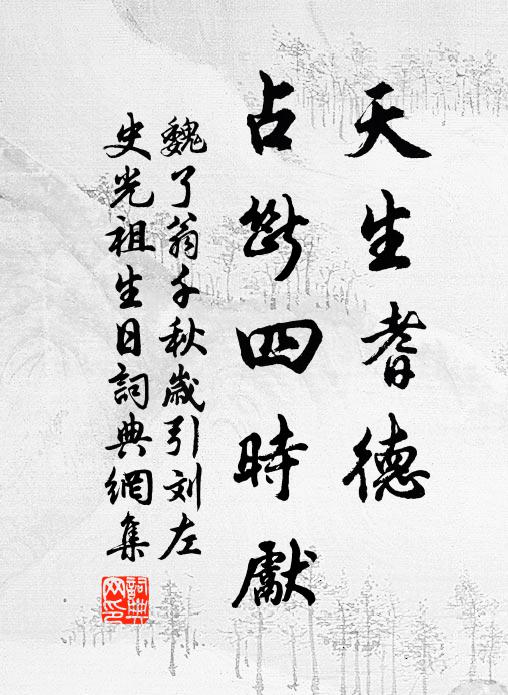 天生耆德
占斷四時獻
魏了翁千秋歲引刘左
史光祖生日詞典網集
詞典网印